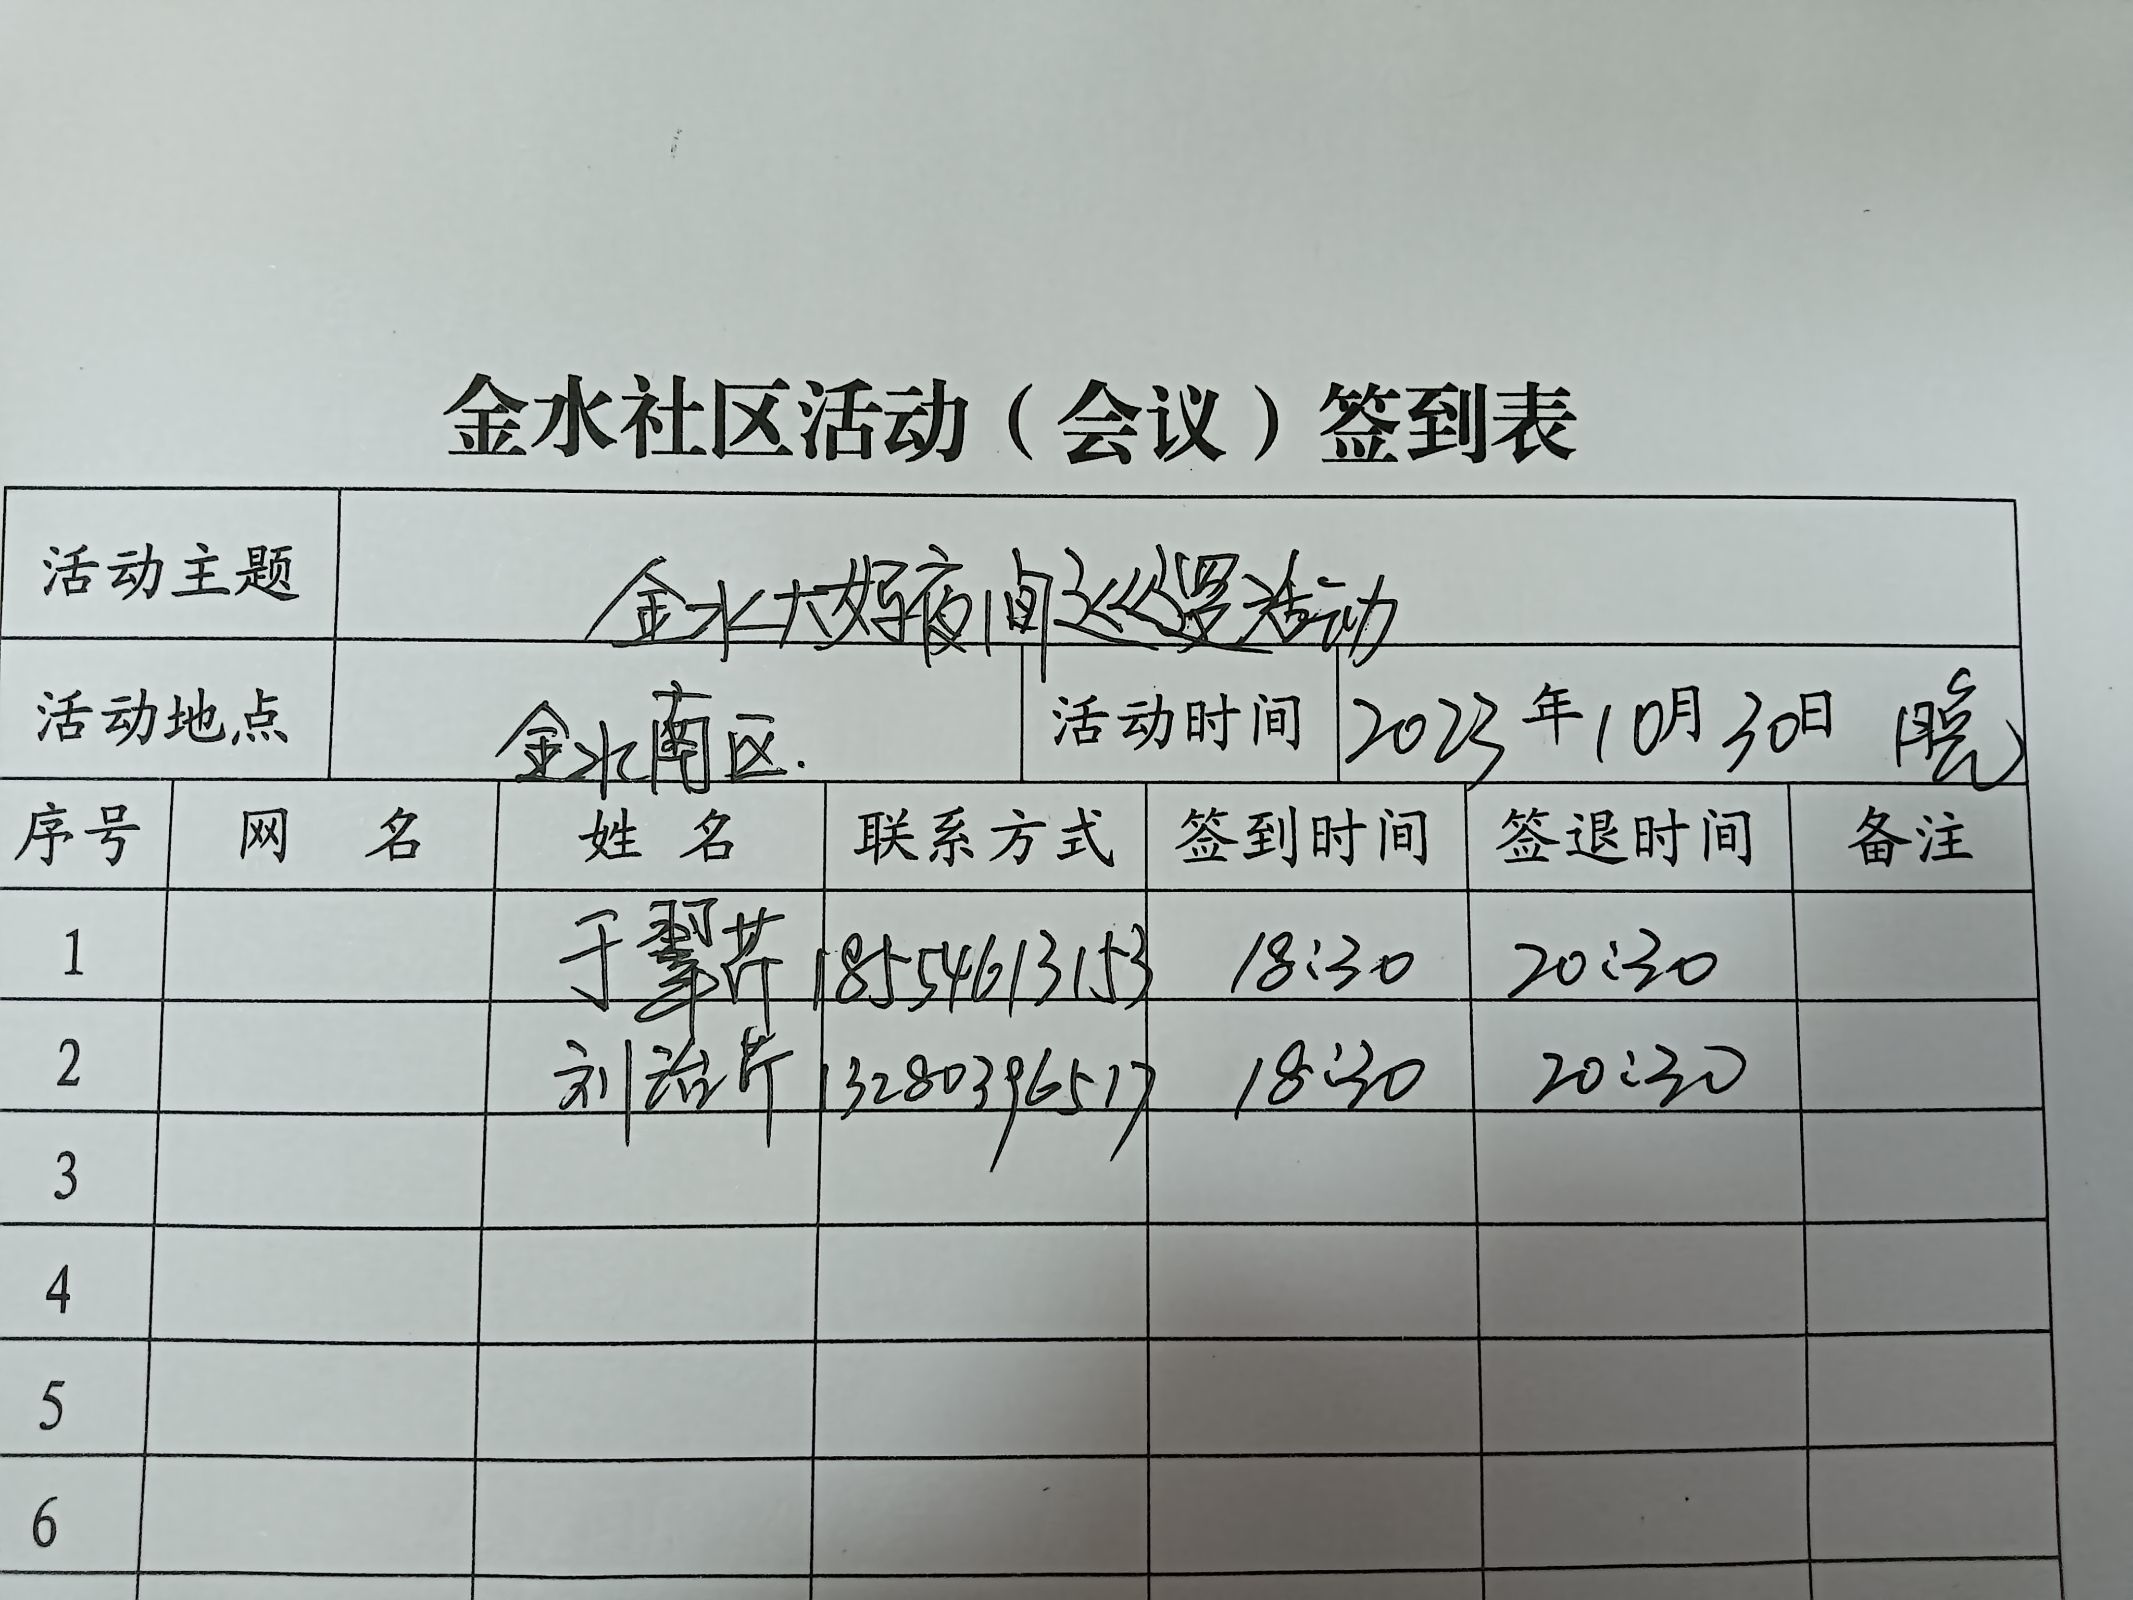 金水社区活动（会议）签到表
活动主题 金水大好夜间巡逻活动
活动地点 金水南区. 活动时间 2023年10月30日 晚
序号 网 名 姓 名 联系方式 签到时间 签退时间 备注
1 于翠芹 18554613153 18:30 20:30
2 刘治芹 13280396517 18:30 20:30
3
4
5
6